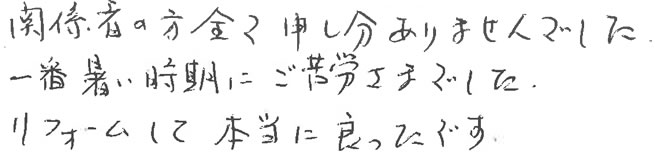 関係者の方全て申し分ありませんでした.
一番暑い時期にご苦労さまでした.
リフォームして本当に良ったです.